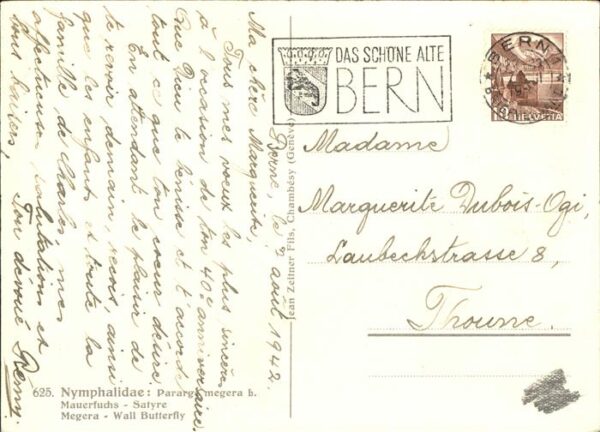 Berne, le 7 août 1942.
Ma chère Marguerite,
Tous mes voeux les plus sincères
à l'occasion de ton 40e anniversaire.
Que Dieu te bénisse et t'accorde
tout ce que ton coeur désire.
En attendant le plaisir de
te revoir demain, reçois, ainsi
que les enfants et toute la
famille de Charles, mes
affectueuses salutations et
bons baisers,
Ton dévoué Rémy.
DAS SCHÖNE ALTE
BERN
BERN
HELVETIA
Madame
Marguerite Dubois-Ogi,
Laubeckstrasse 8,
Thoune.
Jean Zeltner Fils, Chambésy (Genève)
625. Nymphalidae: Pararge megera L.
Mauerfuchs - Satyre
Megera - Wall Butterfly